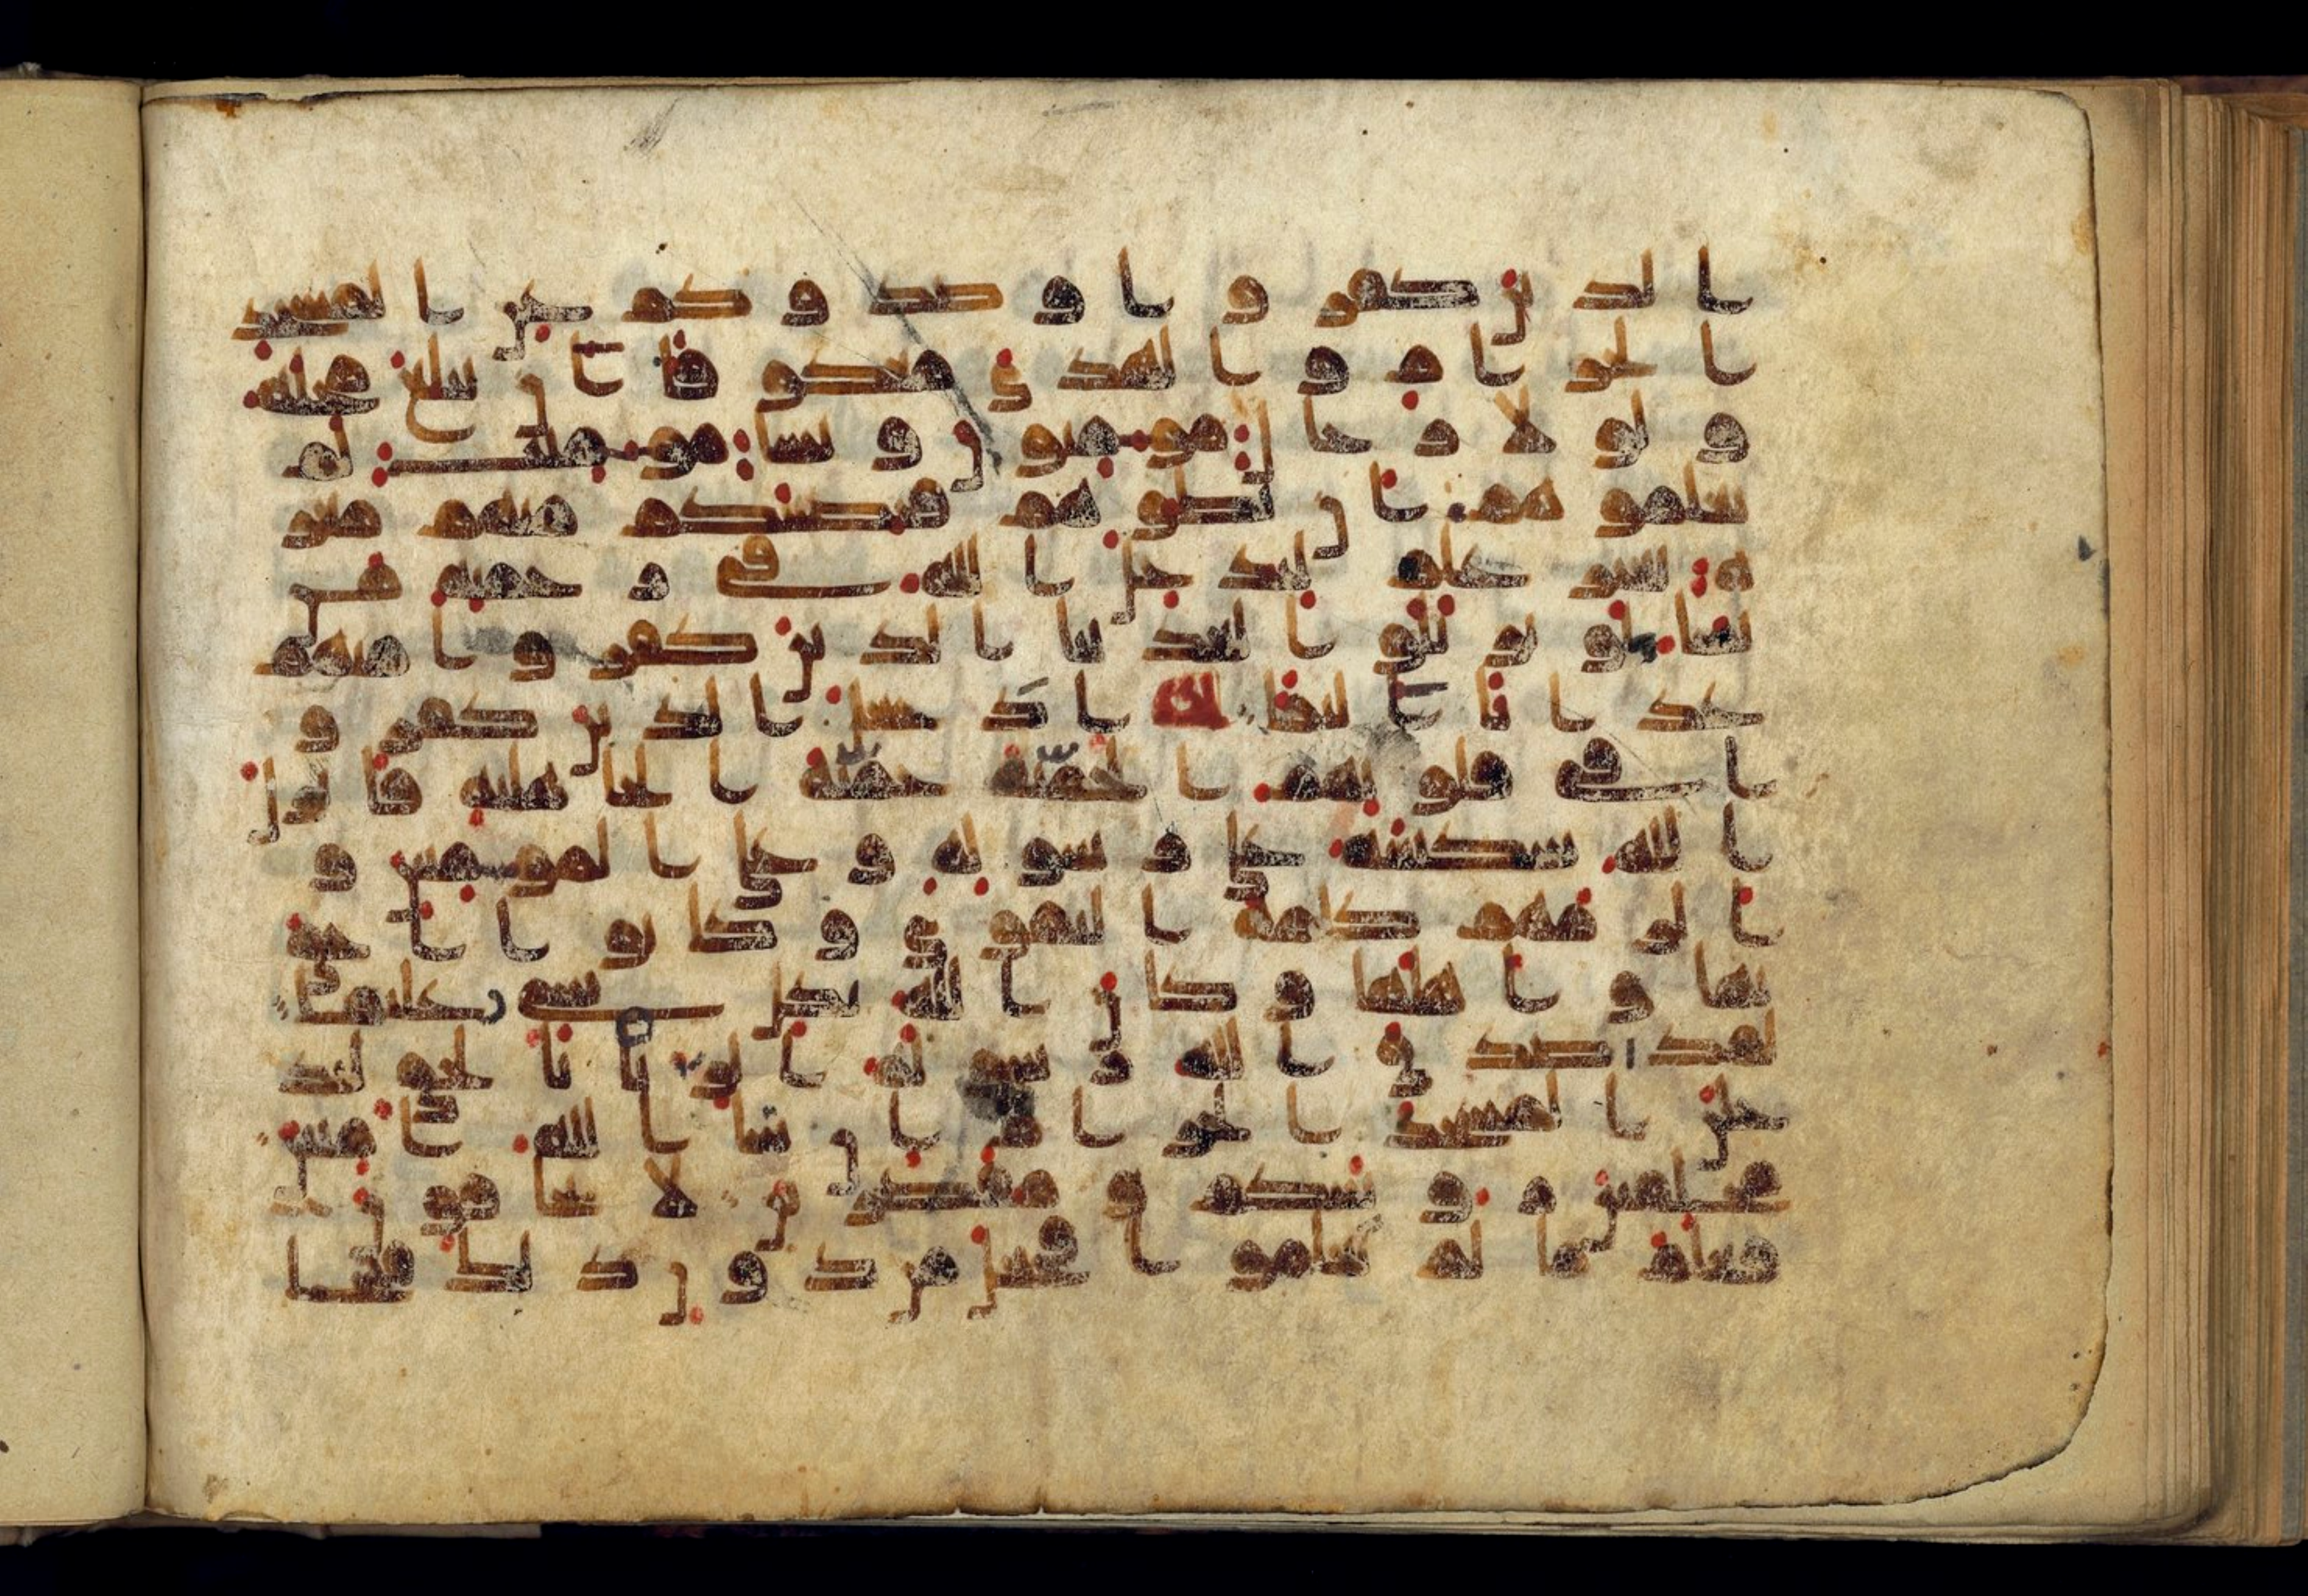 الذين كفروا وصدوكم عن المسجد
الحرام والهدي معكوفا ان يبلغ محله
ولولا رجال مومنون ونسا مومنت لم
تعلموهم ان تطوهم فتصيبكم منهم معر
ة بغير علم ليدخل الله في رحمته من
يشا لو تزيلوا لعذبنا الذين كفروا منهم
عذابا اليما اذ جعل الذين كفرو
ا في قلوبهم الحمية حمية الجاهلية فانزل
الله سكينته على رسوله وعلى المومنين و
الزمهم كلمة التقوى وكانوا احق
بها واهلها وكان الله بكل شي عليما
لقد صدق الله رسوله الريا بالحق لتد
خلن المسجد الحرام ان شا الله امنين
محلقين روسكم ومقصرين لا تخافون
فعلم ما لم تعلموا فجعل من دون ذلك فتحا